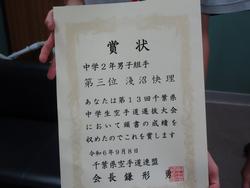 賞状
中学2年男子組手
第三位 浅沼快理
あなたは第13回千葉県
中学生空手道選抜大会
において頭書の成績を
収めたのでこれを賞します
令和6年9月8日
千葉県空手道連盟
会長 鎌形 勇